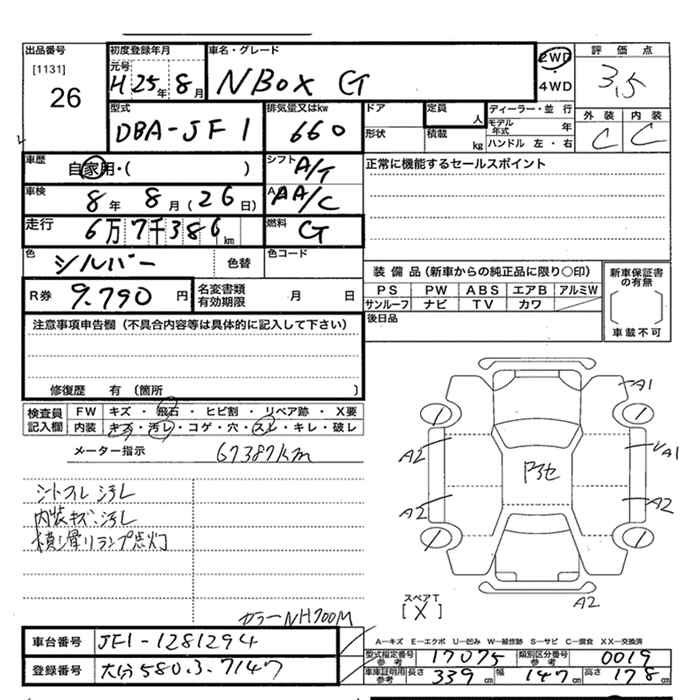 出品番号
[1131]
26
初度登録年月
元号
H25年8月
車名・グレード
N Box G
2WD
4WD
評価点
3.5
外装 内装
C C
型式
DBA-JF1
排気量又はkw
660
ドア
形状
定員
人
積載
kg
ディーラー・並行
モデル年式 年
ハンドル 左・右
車歴
自家用・( )
シフト
A/T
正常に機能するセールスポイント
車検
8年 8月(26日)
AA/C
走行
6万7千386km
燃料
G
色
シルバー
色替
色コード
R券
9.790円
名変書類
有効期限
月 日
装備品(新車からの純正品に限り○印)
PS PW ABS エアB アルミW
サンルーフ ナビ TV カワ
後日品
新車保証書
の有無
車載不可
注意事項申告欄(不具合内容等は具体的に記入して下さい)
修復歴 有(箇所 )
検査員
記入欄
FW キズ・飛石・ヒビ割・リペア跡・X要
内装 キズ・汚レ・コゲ・穴・スレ・キレ・破レ
メーター指示
67387km
シートスレ 汚レ
内装キズ、汚レ
横滑リランプ点灯
A1
A2
A1
A2
A2
A2
スペアT
[X]
カラーNH700M
車台番号
JF1-1281294
登録番号
大分580.3.7147
A-キズ E-エクボ U-凹み W-補修跡 S-サビ C-腐食 XX-交換済
型式指定番号
参考
17075
類別区分番号
参考
0019
車庫証明用
参考
長さ 339cm 幅 147cm 高さ 178cm